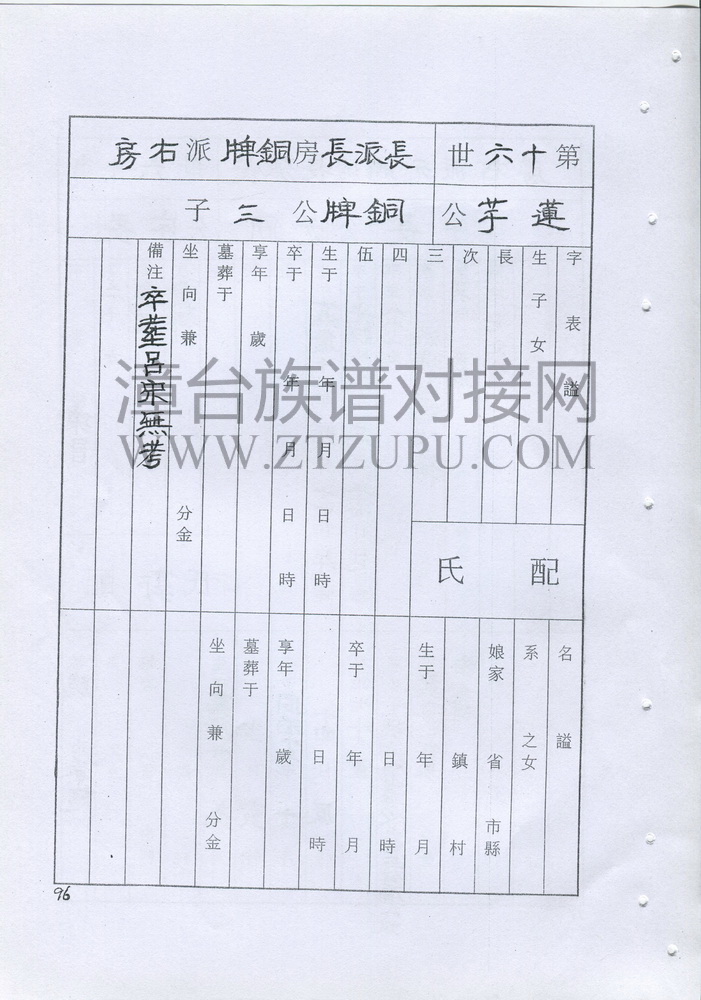 第十六世
長派長房銅牌派右房
蓮芋公
銅牌公三子
字表 諡
生子女
長
次
三
四
伍
生于 年 月 日 時
卒于 年 月 日 時
享年 歲
墓葬于
坐向兼 分金
備注 卒葬呂宋無考
配 氏
名 諡
系 之女
娘家 省 市縣
鎮 村
生于 年 月
日 時
卒于 年 月
日 時
享年 歲
墓葬于
坐向兼 分金
漳台族谱对接网
WWW.ZTZUPU.COM
96